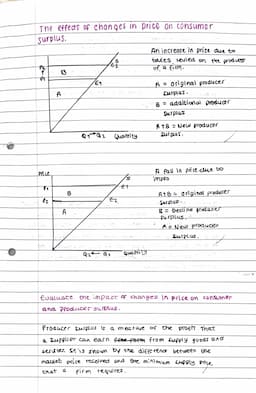 The effect of changes in price on consumer
surplus.
An increase in price due to
taxes levied on the product
of a firm.
P2
P1
B
A
S
e2
e1
A = original producer
surplus.
B = additional producer
surplus
A+B = New producer
surplus.
Q1 Q2 Quantity
Price
A fall in price due to
P1
P2
B
A
S
e1
e2
A+B = original producer
surplus
B = Decline producer
surplus.
A = New producer
surplus.
Q2 Q1 Quantity
Evaluate the impact of changes in price on consumer
and producer surplus.
Producer surplus is a measure of the profit that
a supplier can earn from supply goods and
services. It is shown by the difference between the
market price received and the minimum supply price
that a firm requires.